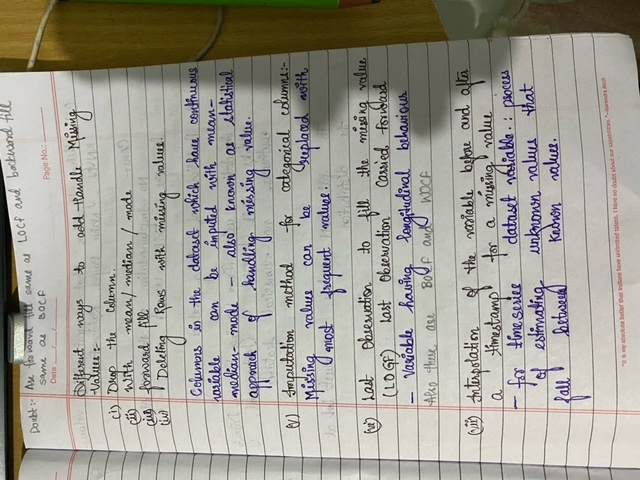 Doubt:- Are forward fill same as LOCF and backword fill
same as BOCF
Date ___/___/___
Page No.:
Different ways to add Handle Missing
Values:-
(i) Drop the column.
(ii) With mean/median/mode
(iii) forward fill
(iv) Deleting Rows with missing values.
Columns in the dataset which have continuous
variable can be imputed with mean-
median-mode - also known as statistical
approach of handling missing value.
(v) Imputation method for categorical columns:-
Missing values can be replaced with
most frequent values.
(vi) Last Observation to fill the missing value
(LOGF) Last Observation Carried forward
- Variable having longitudinal behaviour
Also there are BOCF and WOCF
(vii) Interpolation of the variable before and after
a timestamp for a missing value
- for time series dataset variable. : process
of estimating unknown values that
fall between known values.
"It is my absolute belief that Indians have unlimited talent. I have no doubt about our capabilities." -Narendra Modi